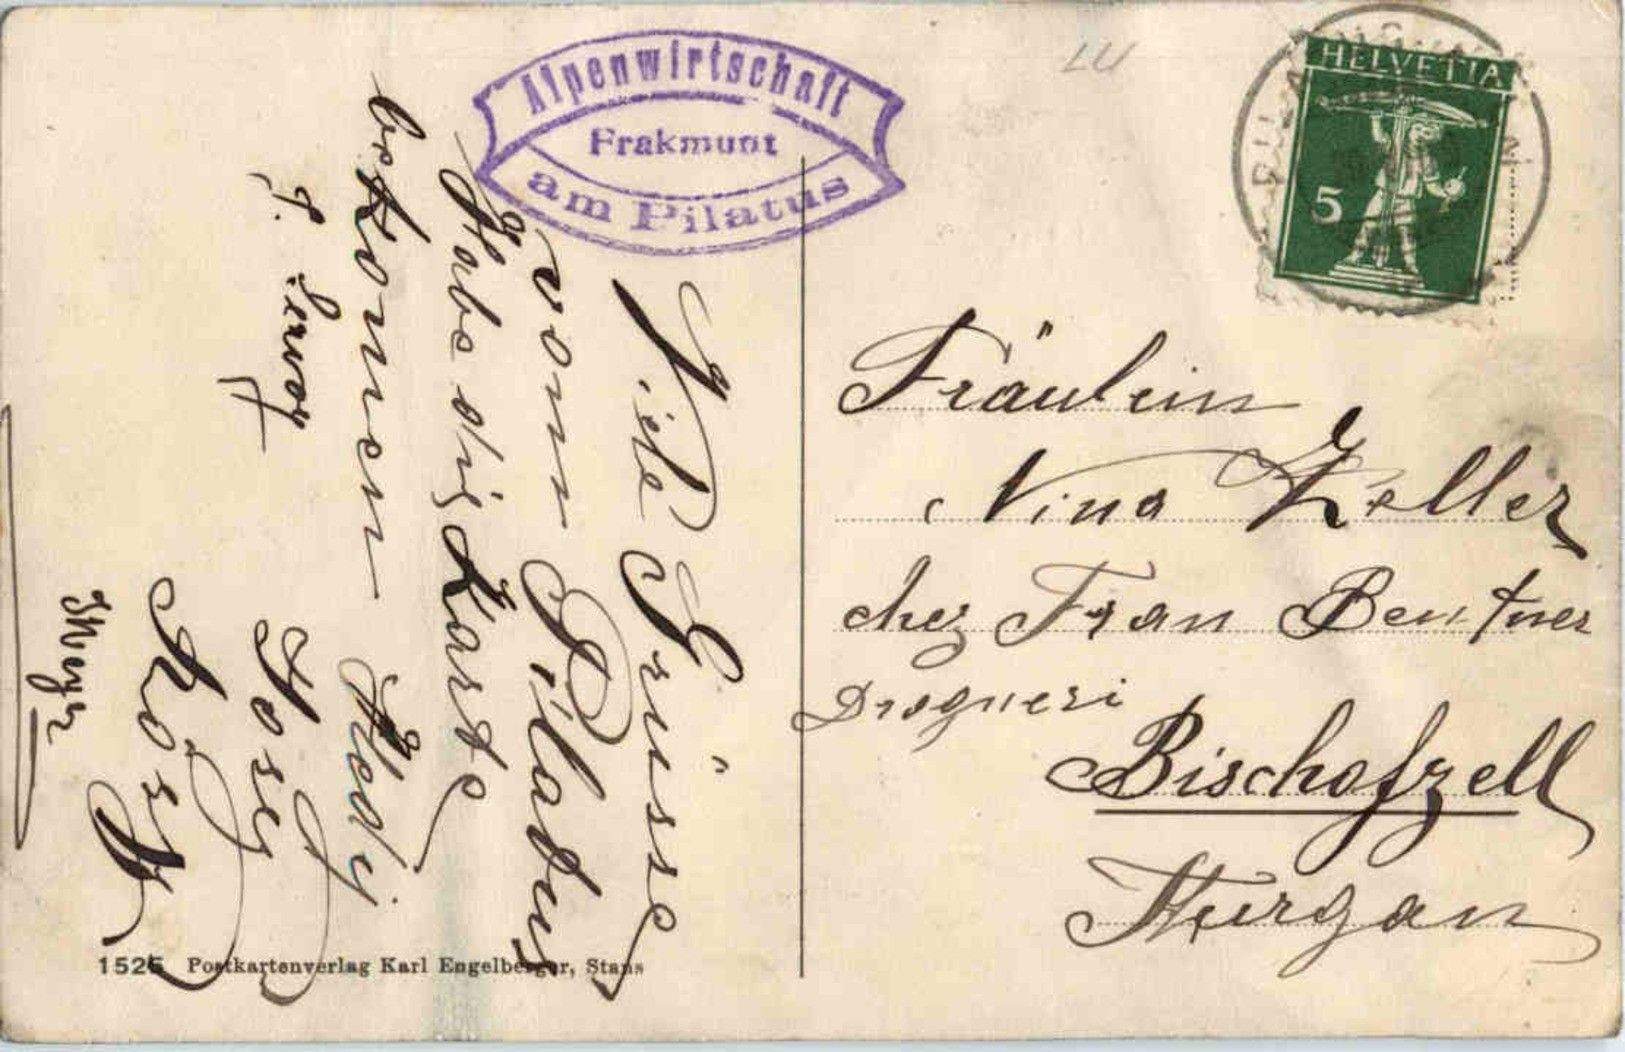 Alpenwirtschaft
Frakmunt
am Pilatus
HELVETIA
5
Viele Grüsse
vom Pilatus
Habe dis Karte
bekomen
Hedy
Josy
Rosy
Fräulein
Nina Zeller
chez Frau Beutner
Drogueri
Bischofzell
Thurgau
1525 Postkartenverlag Karl Engelberger, Stans